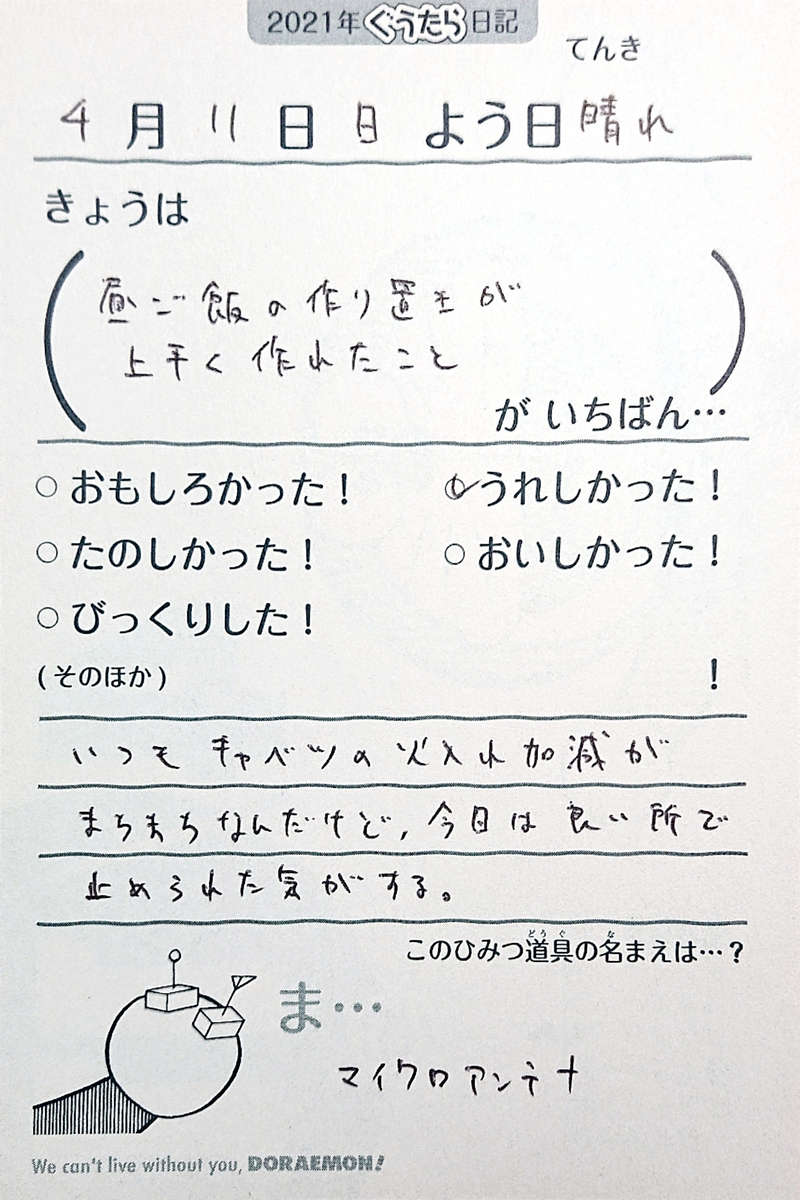 2021年ぐうたら日記
てんき
4月11日日よう日晴れ
きょうは
昼ご飯の作り置きが
上手く作れたこと
が いちばん…
○おもしろかった! ○うれしかった!
○たのしかった! ○おいしかった!
○びっくりした!
(そのほか) !
いつもキャベツの火入れ加減が
まちまちなんだけど,今日は良い所で
止められた気がする。
このひみつ道具の名まえは…?
どうぐ な
ま…
マイクロアンテナ
We can't live without you, DORAEMON!